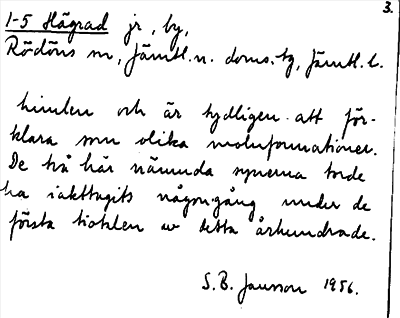 3.
1-5 Hägrad jr, by,
Rödöns sn, Jämtl.n. doms.tg, Jämtl. l.
himlen och är tydligen att för-
klara som olika molnformationer.
De två här nämnda synerna torde
ha iakttagits någon gång under de
första tiotalen av detta århundrade.
S.B. Jansson 1956.